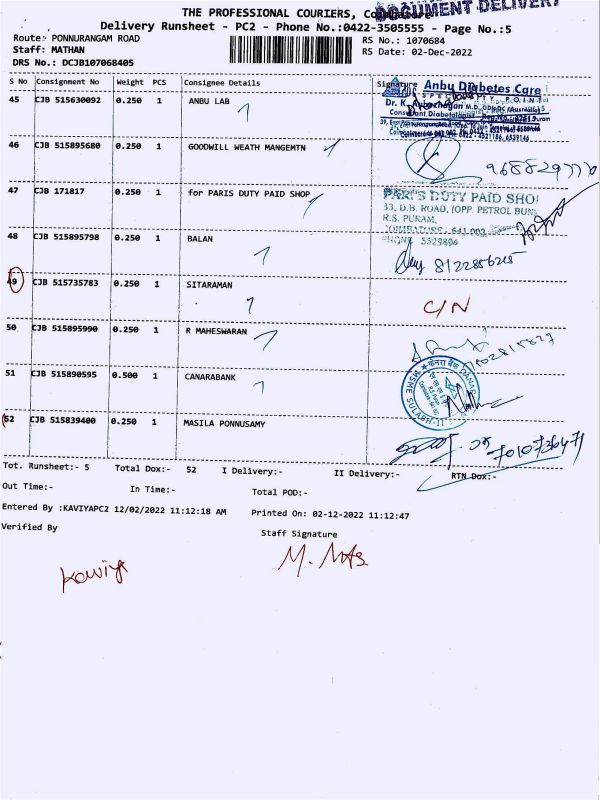 THE PROFESSIONAL COURIERS, Coimbatore
DOCUMENT DELIVERY
Delivery Runsheet - PC2 - Phone No.:0422-3505555 - Page No.:5
Route: PONNURANGAM ROAD
RS No.: 1070684
Staff: MATHAN
RS Date: 02-Dec-2022
DRS No.: DCJB107068405
S No Consignment No Weight PCS Consignee Details Signature
45 CJB 515630092 0.250 1 ANBU LAB
Anbu Diabetes Care
Dr. K.
46 CJB 515895680 0.250 1 GOODWILL WEATH MANGEMTN
9688297770
47 CJB 171817 0.250 1 for PARIS DUTY PAID SHOP
PARIS DUTY PAID SHOP
33, D.B. ROAD, (OPP. PETROL BUNK
R.S. PURAM,
COIMBATORE - 641 002
PHONE
48 CJB 515895798 0.250 1 BALAN
49 CJB 515735783 0.250 1 SITARAMAN
C/N
50 CJB 515895990 0.250 1 R MAHESWARAN
51 CJB 515890595 0.500 1 CANARABANK
52 CJB 515839400 0.250 1 MASILA PONNUSAMY
Tot. Runsheet:- 5 Total Dox:- 52 I Delivery:- II Delivery:- RTN Dox:-
Out Time:- In Time:- Total POD:-
Entered By :KAVIYAPC2 12/02/2022 11:12:18 AM Printed On: 02-12-2022 11:12:47
Verified By Staff Signature
Kaviya